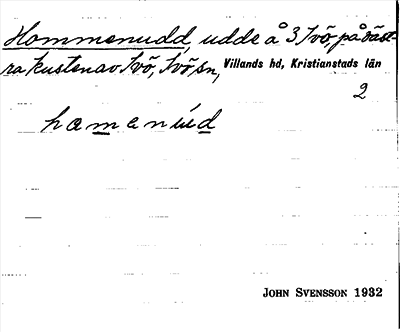 Hommenudd, udde å 3 Ivö, på väst-
ra kusten av Ivö, Ivö sn, Villands hd, Kristianstads län
2
hamenúd
JOHN SVENSSON 1932